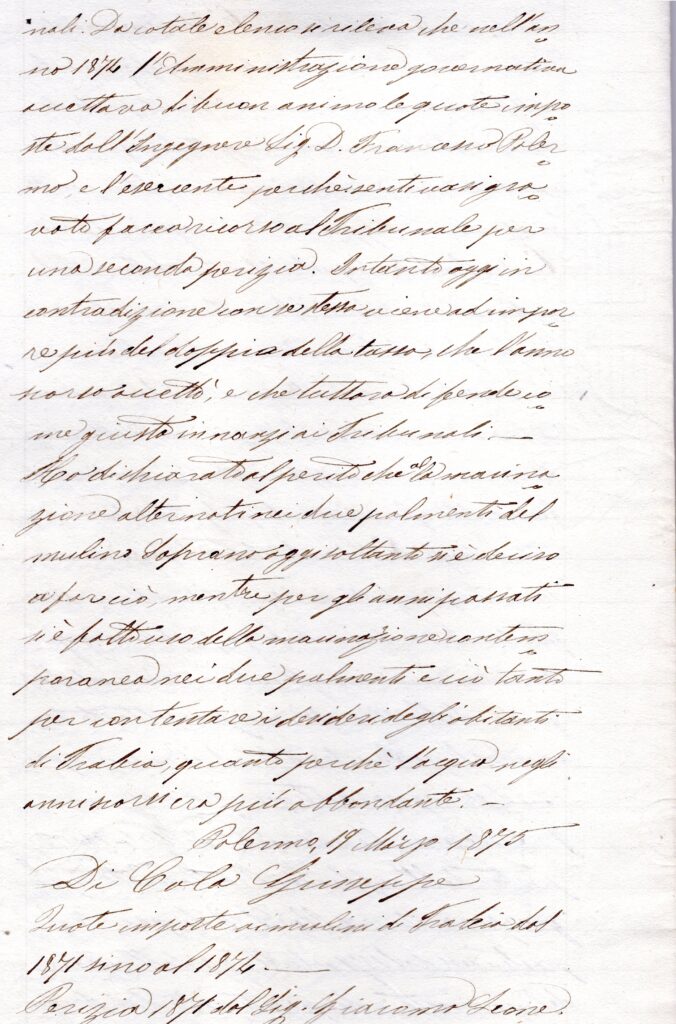 nali. Da cotale elenco si rileva che nell'an
no 1874 l'Amministrazione governativa
accettava di buon animo le quote impo
ste dall'Ingegnere Sig. D. Francesco Paler
mo, e l'esercente perchè sentivasi gra
vato faccia ricorso al Tribunale per
una seconda perizia. Intanto oggi in
contradizione con se stessa viene ad impor
re più del doppio della tassa, che l'anno
scorso accettò, e che tuttora difende co
me giusta innanzi ai Tribunali. —
Ho dichiarato al perito che alla macina
zione alternata nei due palmenti del
mulino Soprano oggi soltanto si è deciso
a far ciò, mentre per gli anni passati
si è fatto uso della macinazione contem
poranea nei due palmenti e ciò tanto
per contentare i desideri degli abitanti
di Trabia, quanto perchè l'acqua negli
anni scorsi era più abbondante. —
Palermo, 19 Marzo 1875
Di Cola Giuseppe
Quote imposte ai mulini di Trabia dal
1871 sino al 1874. —
Perizia 1871 del Sig. Giacomo Leone.